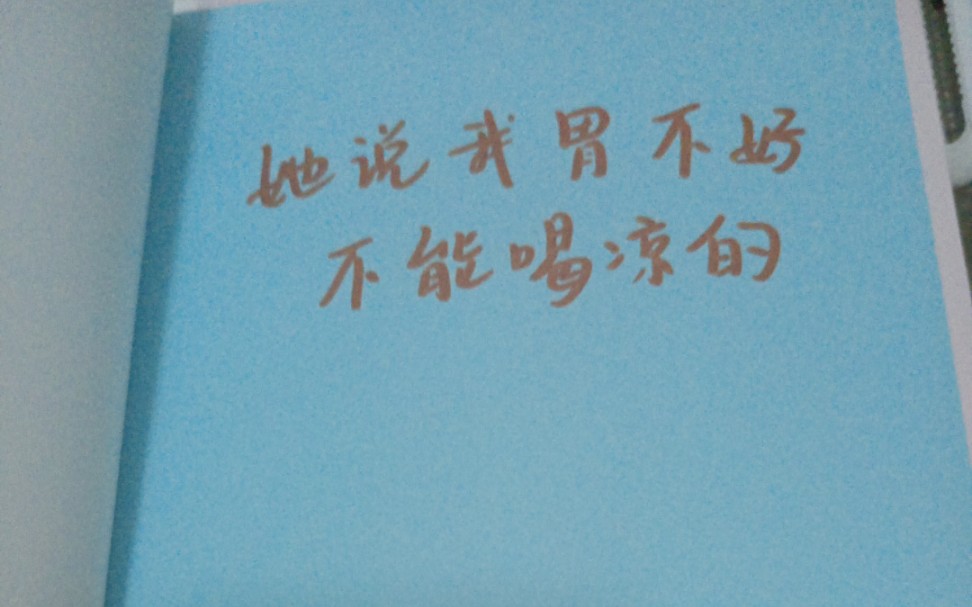 她说我胃不好
不能喝凉的